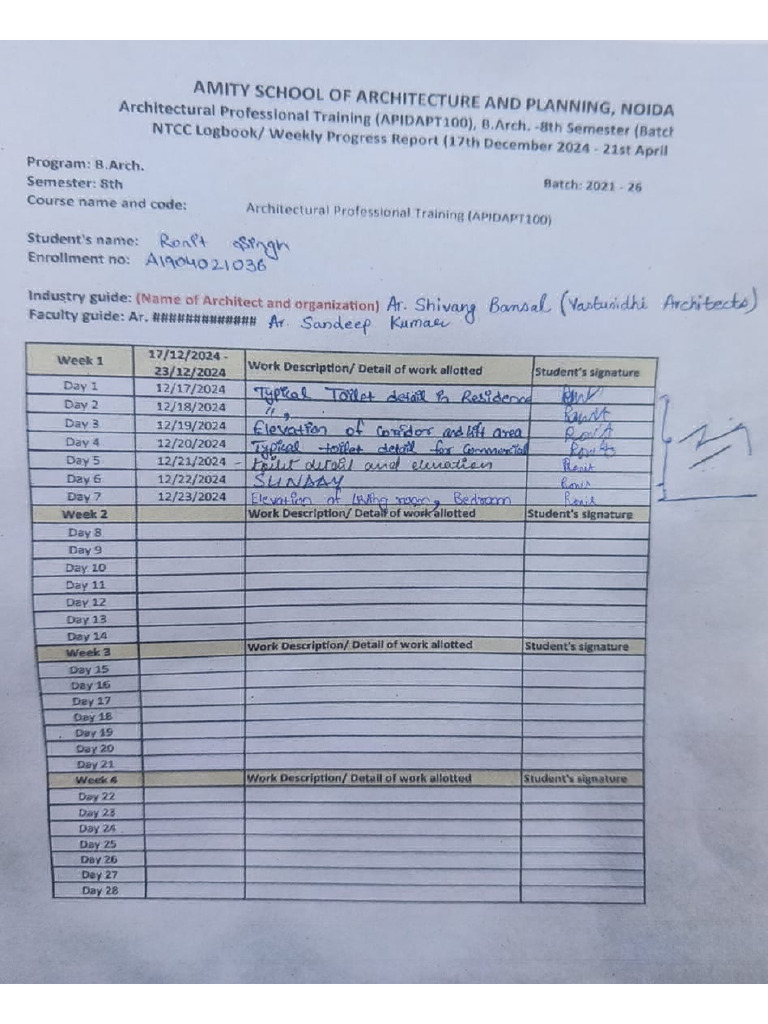 AMITY SCHOOL OF ARCHITECTURE AND PLANNING, NOIDA
Architectural Professional Training (APIDAPT100), B.Arch. -8th Semester (Batch
NTCC Logbook/ Weekly Progress Report (17th December 2024 - 21st April
Program: B.Arch.
Semester: 8th Batch: 2021 - 26
Course name and code: Architectural Professional Training (APIDAPT100)
Student's name: Ronit Singh
Enrollment no: A1904021036
Industry guide: (Name of Architect and organization) Ar. Shivang Bansal (Vastunidhi Architects)
Faculty guide: Ar. ############# Ar. Sandeep Kumar
Week 1 17/12/2024 - 23/12/2024 Work Description/ Detail of work allotted Student's signature
Day 1 12/17/2024 Typical Toilet detail in Residence
Day 2 12/18/2024 " , Ronit
Day 3 12/19/2024 Elevation of corridor and lift area Ronit
Day 4 12/20/2024 Typical toilet detail for Commercial Ronit
Day 5 12/21/2024 - toilet detail and elevation Ronit
Day 6 12/22/2024 SUNDAY Ronit
Day 7 12/23/2024 Elevation of living room, Bedroom Ronit
Week 2 Work Description/ Detail of work allotted Student's signature
Day 8
Day 9
Day 10
Day 11
Day 12
Day 13
Day 14
Week 3 Work Description/ Detail of work allotted Student's signature
Day 15
Day 16
Day 17
Day 18
Day 19
Day 20
Day 21
Week 4 Work Description/ Detail of work allotted Student's signature
Day 22
Day 23
Day 24
Day 25
Day 26
Day 27
Day 28